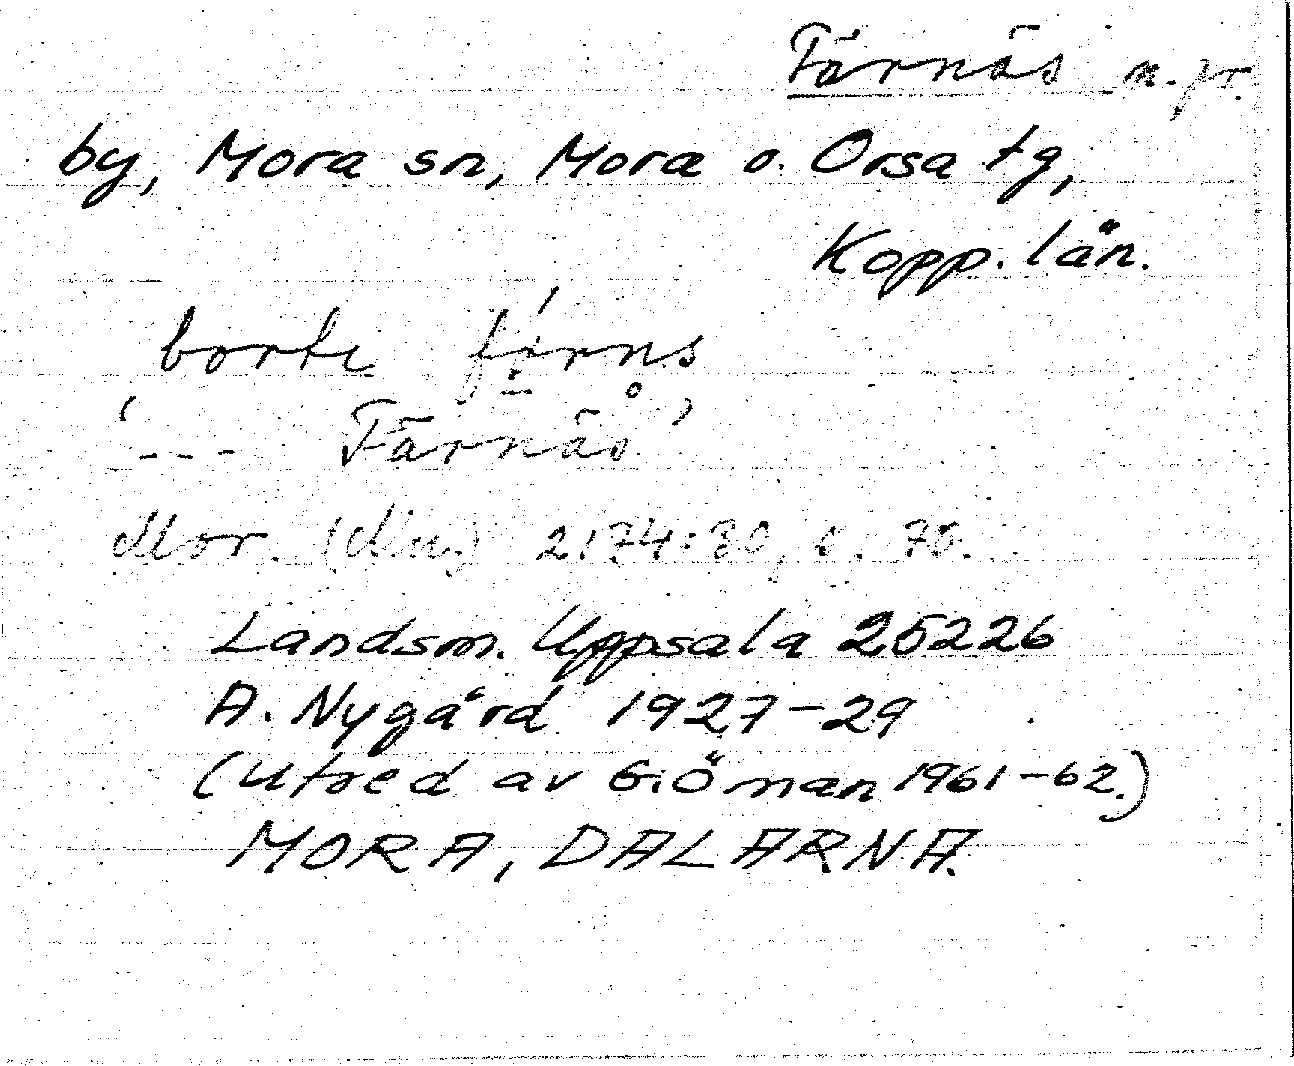 Färnäs n. pr.
by, Mora sn, Mora o. Orsa tg,
Kopp. län.
borti färns
'--- Färnäs'
Mor. 2174:30, s. 70.
Landsm. Uppsala 25226
A. Nygård 1927-29
(utred av G. Öman 1961-62.)
MORA, DALARNA.